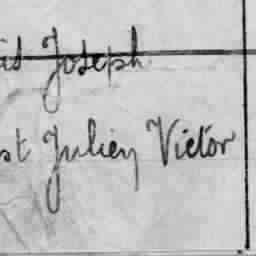 Joseph
st Julien Victor